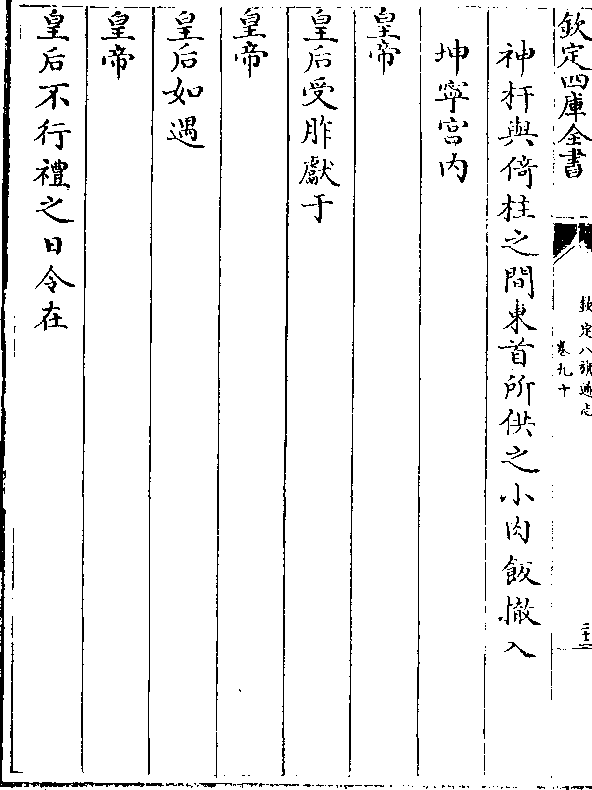 欽定四庫全書
欽定八旗通志
卷九十
神杆與倚柱之間東首所供之小肉飯撤入
坤寧宮内
皇帝
皇后受胙獻于
皇帝
皇后如遇
皇帝
皇后不行禮之日令在